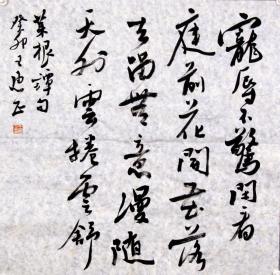 寵辱不驚閑看
庭前花開花落
去留無意漫隨
天外雲捲雲舒
菜根譚句
癸卯